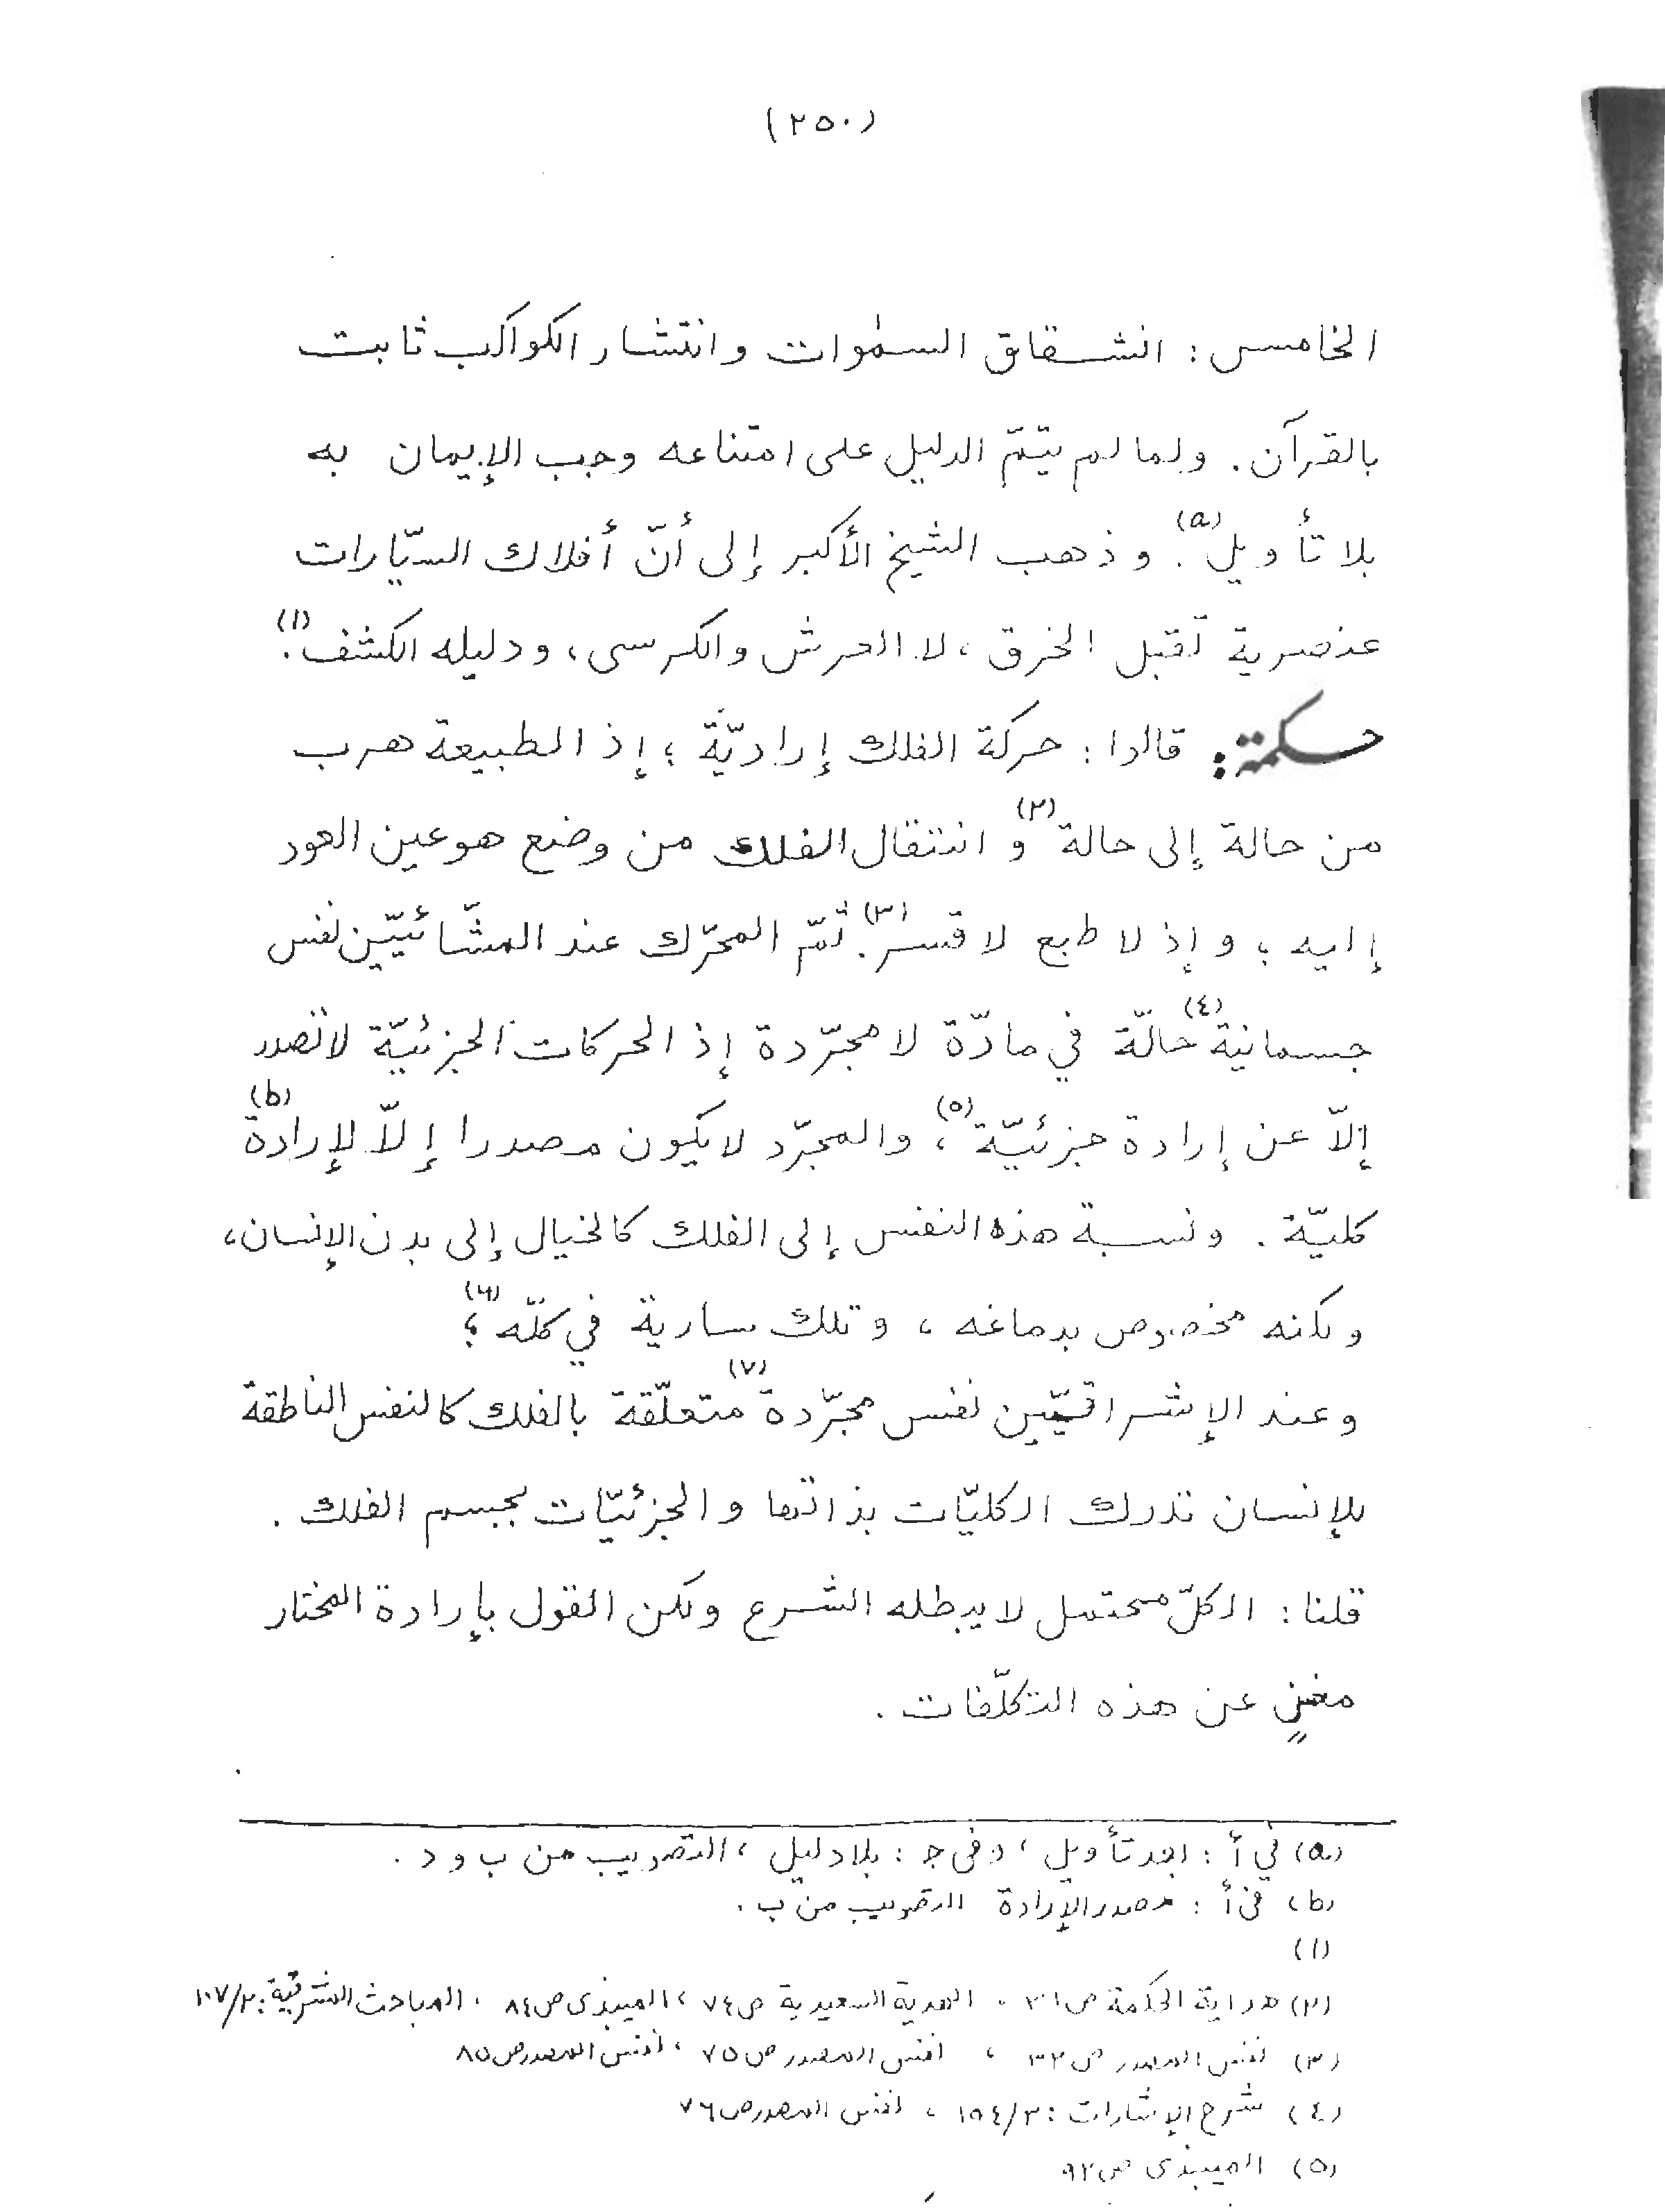 (٢٥٠)
الخامس : انشقاق السمٰوات وانتشار الكواكب ثابت
بالقرآن . ولما لم يتمّ الدليل على امتناعه وجب الإيمان به
بلا تأويل (a) . وذهب الشيخ الأكبر إلى أنّ أفلاك السيّارات
عنصرية تقبل الخرق ، لا العرش والكرسى ، ودليله الكشف (١) .
حكمة : قالوا : حركة الفلك إراديّة ؛ إذ الطبيعة هرب
من حالة إلى حالة (٢) و انتقال الفلك من وضع هو عين العود
إليه ؛ وإذ لا طبع لا قسر (٣) . ثمّ المحرّك عند المشّائيّين نفس
جسمانية (٤) حالّة في مادّة لا مجرّدة إذ الحركات الجزئيّة لا تصدر
إلاّ عن إرادة جزئيّة (٥) ، والمجرّد لا يكون مصدرا إلاّ لإرادة (b)
كليّة . ونسبة هذه النفس إلى الفلك كالخيال إلى بدن الإنسان ،
ولكنه مخصوص بدماغه ، وتلك سارية في كلّه (٦) ؛
وعند الإشراقيّين نفس مجرّدة (٧) متعلّقة بالفلك كالنفس الناطقة
للإنسان تدرك الكليّات بذاتها والجزئيّات بجسم الفلك .
قلنا : الكلّ محتمل لا يبطله الشرع ولكن القول بإرادة المختار
مغنٍ عن هذه التكلّفات .
(a) في أ : بعد تأويل ، وفى ج : بلا دليل ، التصويب من ب و د .
(b) فى أ : مصدر الإرادة التصويب من ب .
(١)
(٢) هداية الحكمة ص ٣١ ، الهدية السعيدية ص ٧٤ ، الميبذى ص ٨٤ ، المباحث المشرقية : ١٠٧/٢
(٣) نفس المصدر ص ٣٢ ، نفس المصدر ص ٧٥ ، نفس المصدر ص ٨٥
(٤) شرح الإشارات : ١٥٤/٣ ، نفس المصدر ص ٧٦
(٥) الميبذى ص ٩٢